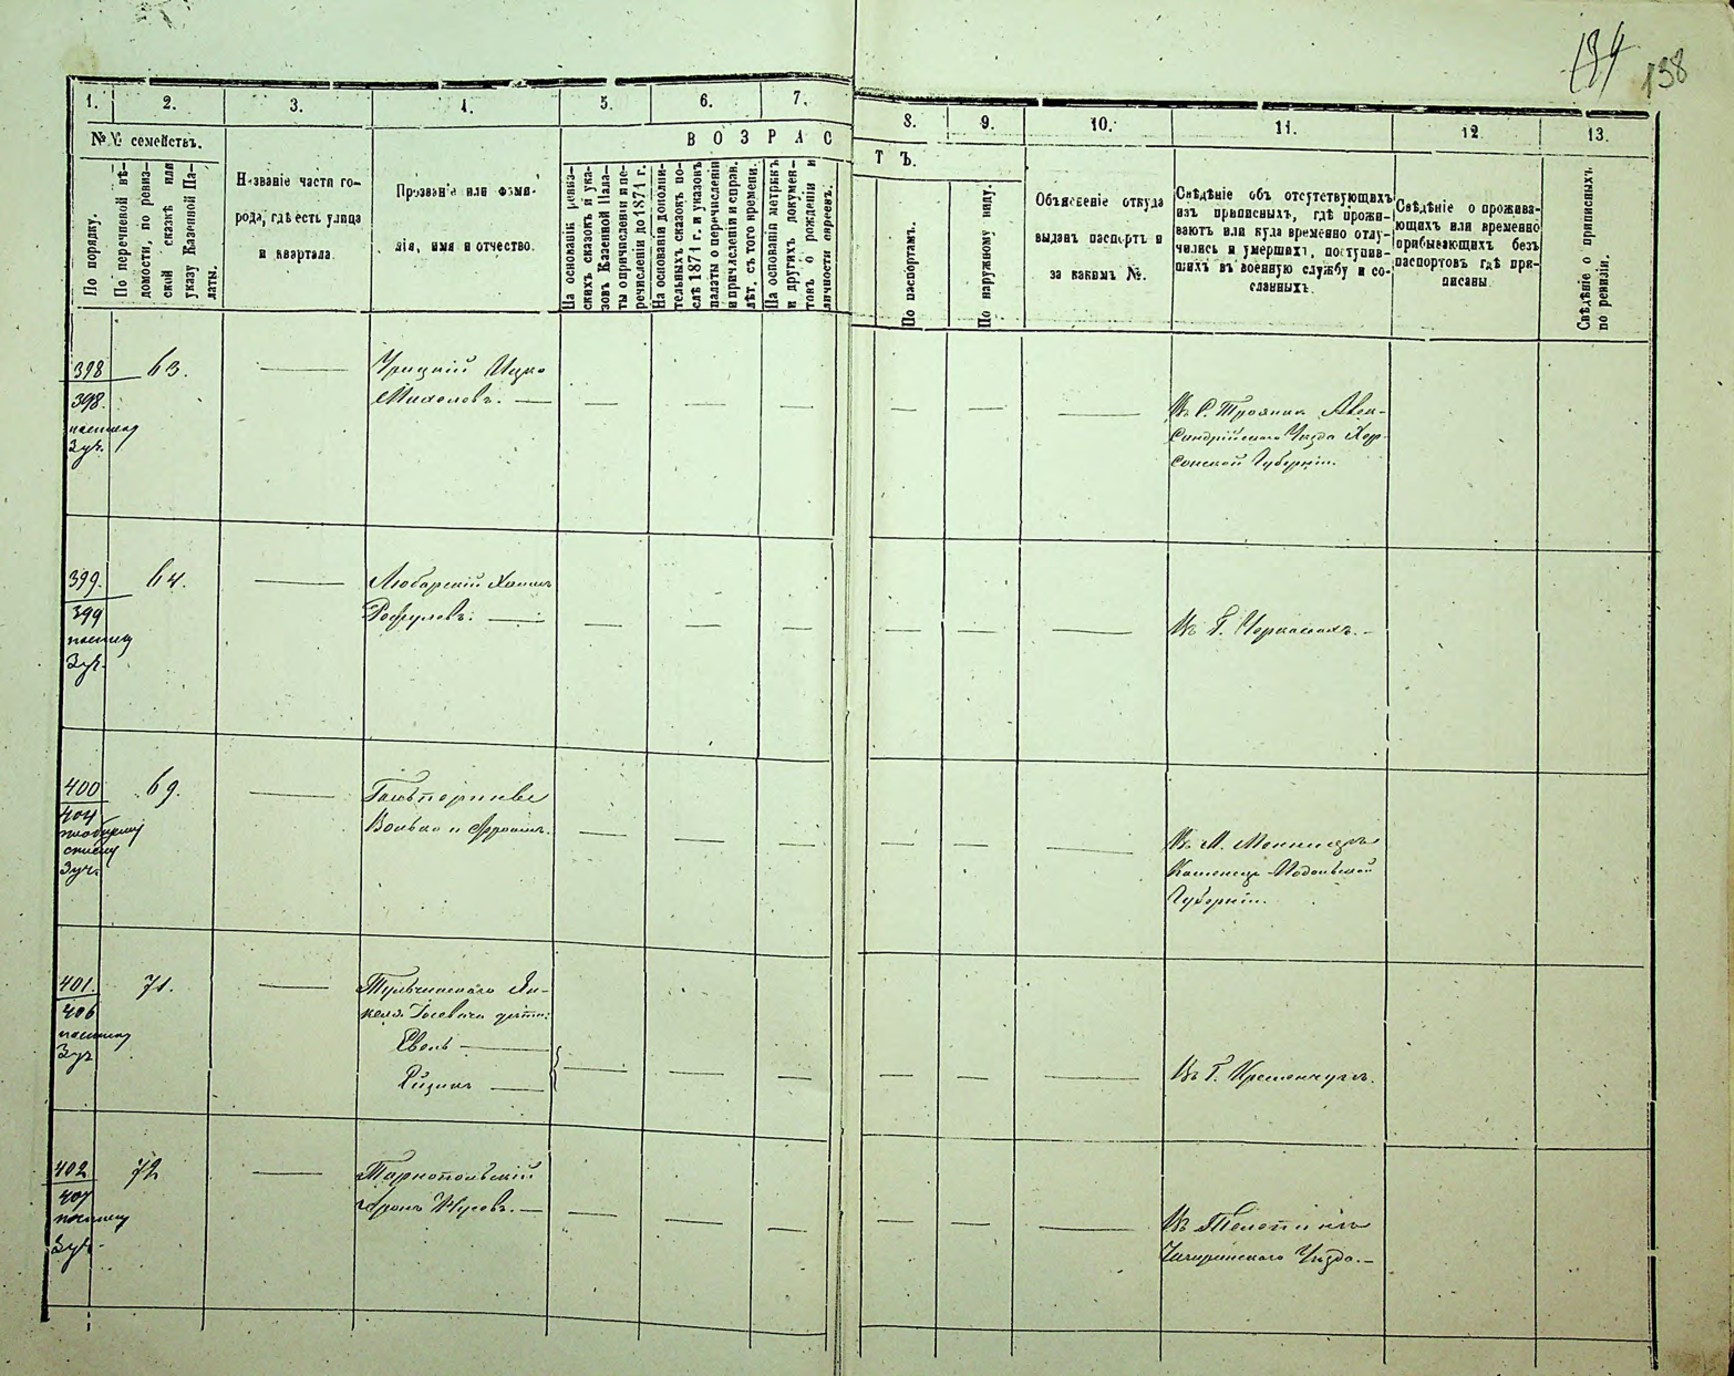 134 138
1. 2. 3. 4. 5. 6. 7. 8. 9. 10. 11. 12 13.
№ № семействъ.
ВОЗРАС
ТЪ.
По порядку.
По перечневой вѣ-
домости, по ревиз-
ской сказкѣ или
указу Казенной Па-
латы.
Названіе части го-
рода, гдѣ есть улица
и квартала.
Прозваніе или фами-
лія, имя и отчество.
На основаніи ревиз-
скихъ сказокъ и ука-
зовъ Казенной Пала-
ты о причисленіи и пе-
речисленіи до 1871 г.
На основаніи дополни-
тельныхъ сказокъ по-
слѣ 1871 г. и указовъ
палаты о перечисленіи
и причисленіи и справ.
лѣт. съ того времени.
На основаніи метрикъ
и другихъ докумен-
товъ о рожденіи и
личности евреевъ.
По паспортамъ.
По наружному виду.
Объясненіе откуда
выданъ паспортъ и
за какимъ №.
Свѣдѣніе объ отсутствующихъ
изъ приписныхъ, гдѣ прожи-
ваютъ или куда временно отлу-
чились и умершихъ, поступив-
шихъ въ военную службу и со-
сланныхъ.
Свѣдѣніе о прожива-
ющихъ или временно
прибывающихъ безъ
паспортовъ гдѣ при-
писаны
Свѣдѣніе о приписныхъ
по ревизіи.
398 63. Урицкій Ицко
398. Михелевъ.
3 уч.
Въ С. Троянка Алек-
сандрійскаго Уѣзда Хер-
сонской Губерніи.
399. 64. Любарскій Хаимъ
399
3 уч.
Въ Г. Черкасахъ.
400 69. Гальперины
404 Волько и Фроимъ.
3 уч.
Въ М.
Каменецъ-Подольской
Губерніи.
401. 71. Тульчинскаго Ян-
406 келя Госевича дѣти:
3 уч
Евель
Рузинъ
Въ Г. Кременчугъ.
402 72 Тарнопольскій
407 Аронъ
3 уч.
Въ Телепинѣ
Чигиринскаго Уѣзда.